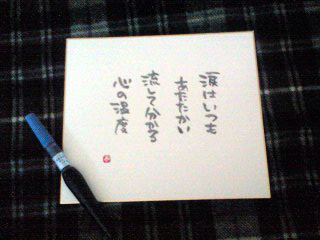 涙はいつも
あたたかい
流して分かる
心の温度